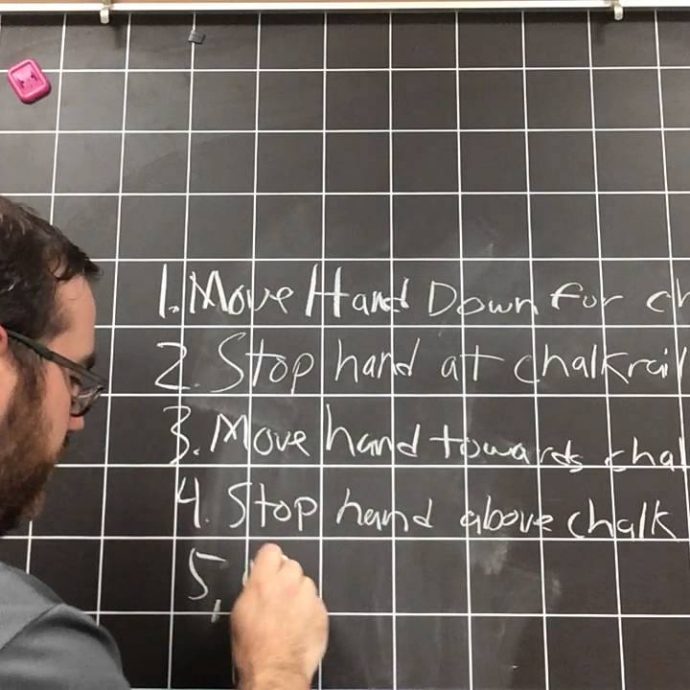 1. Move Hand Down for ch
2. Stop hand at chalkrail
3. Move hand towards chal
4. Stop hand above chalk
5.